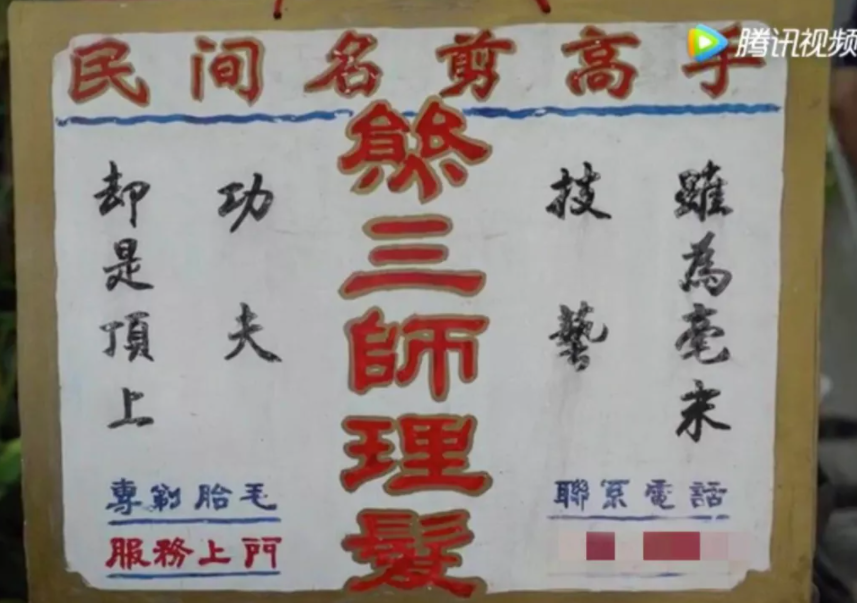 腾讯视频
民间名剪高手
熊三師理髮
雖為毫末
技藝
却是頂上
功夫
專剃胎毛
服務上門
聯系電話